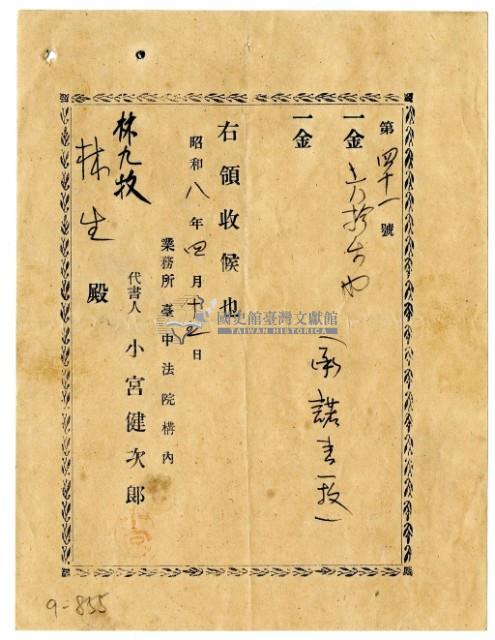 第四十一號
一金
一金
(承諾書一枚)
右領收候也
昭和八年四月十五日
業務所臺中法院構內
代書人 小宮健次郎
林九牧
林生 殿
國史館臺灣文獻館
TAIWAN HISTORICA
9-855